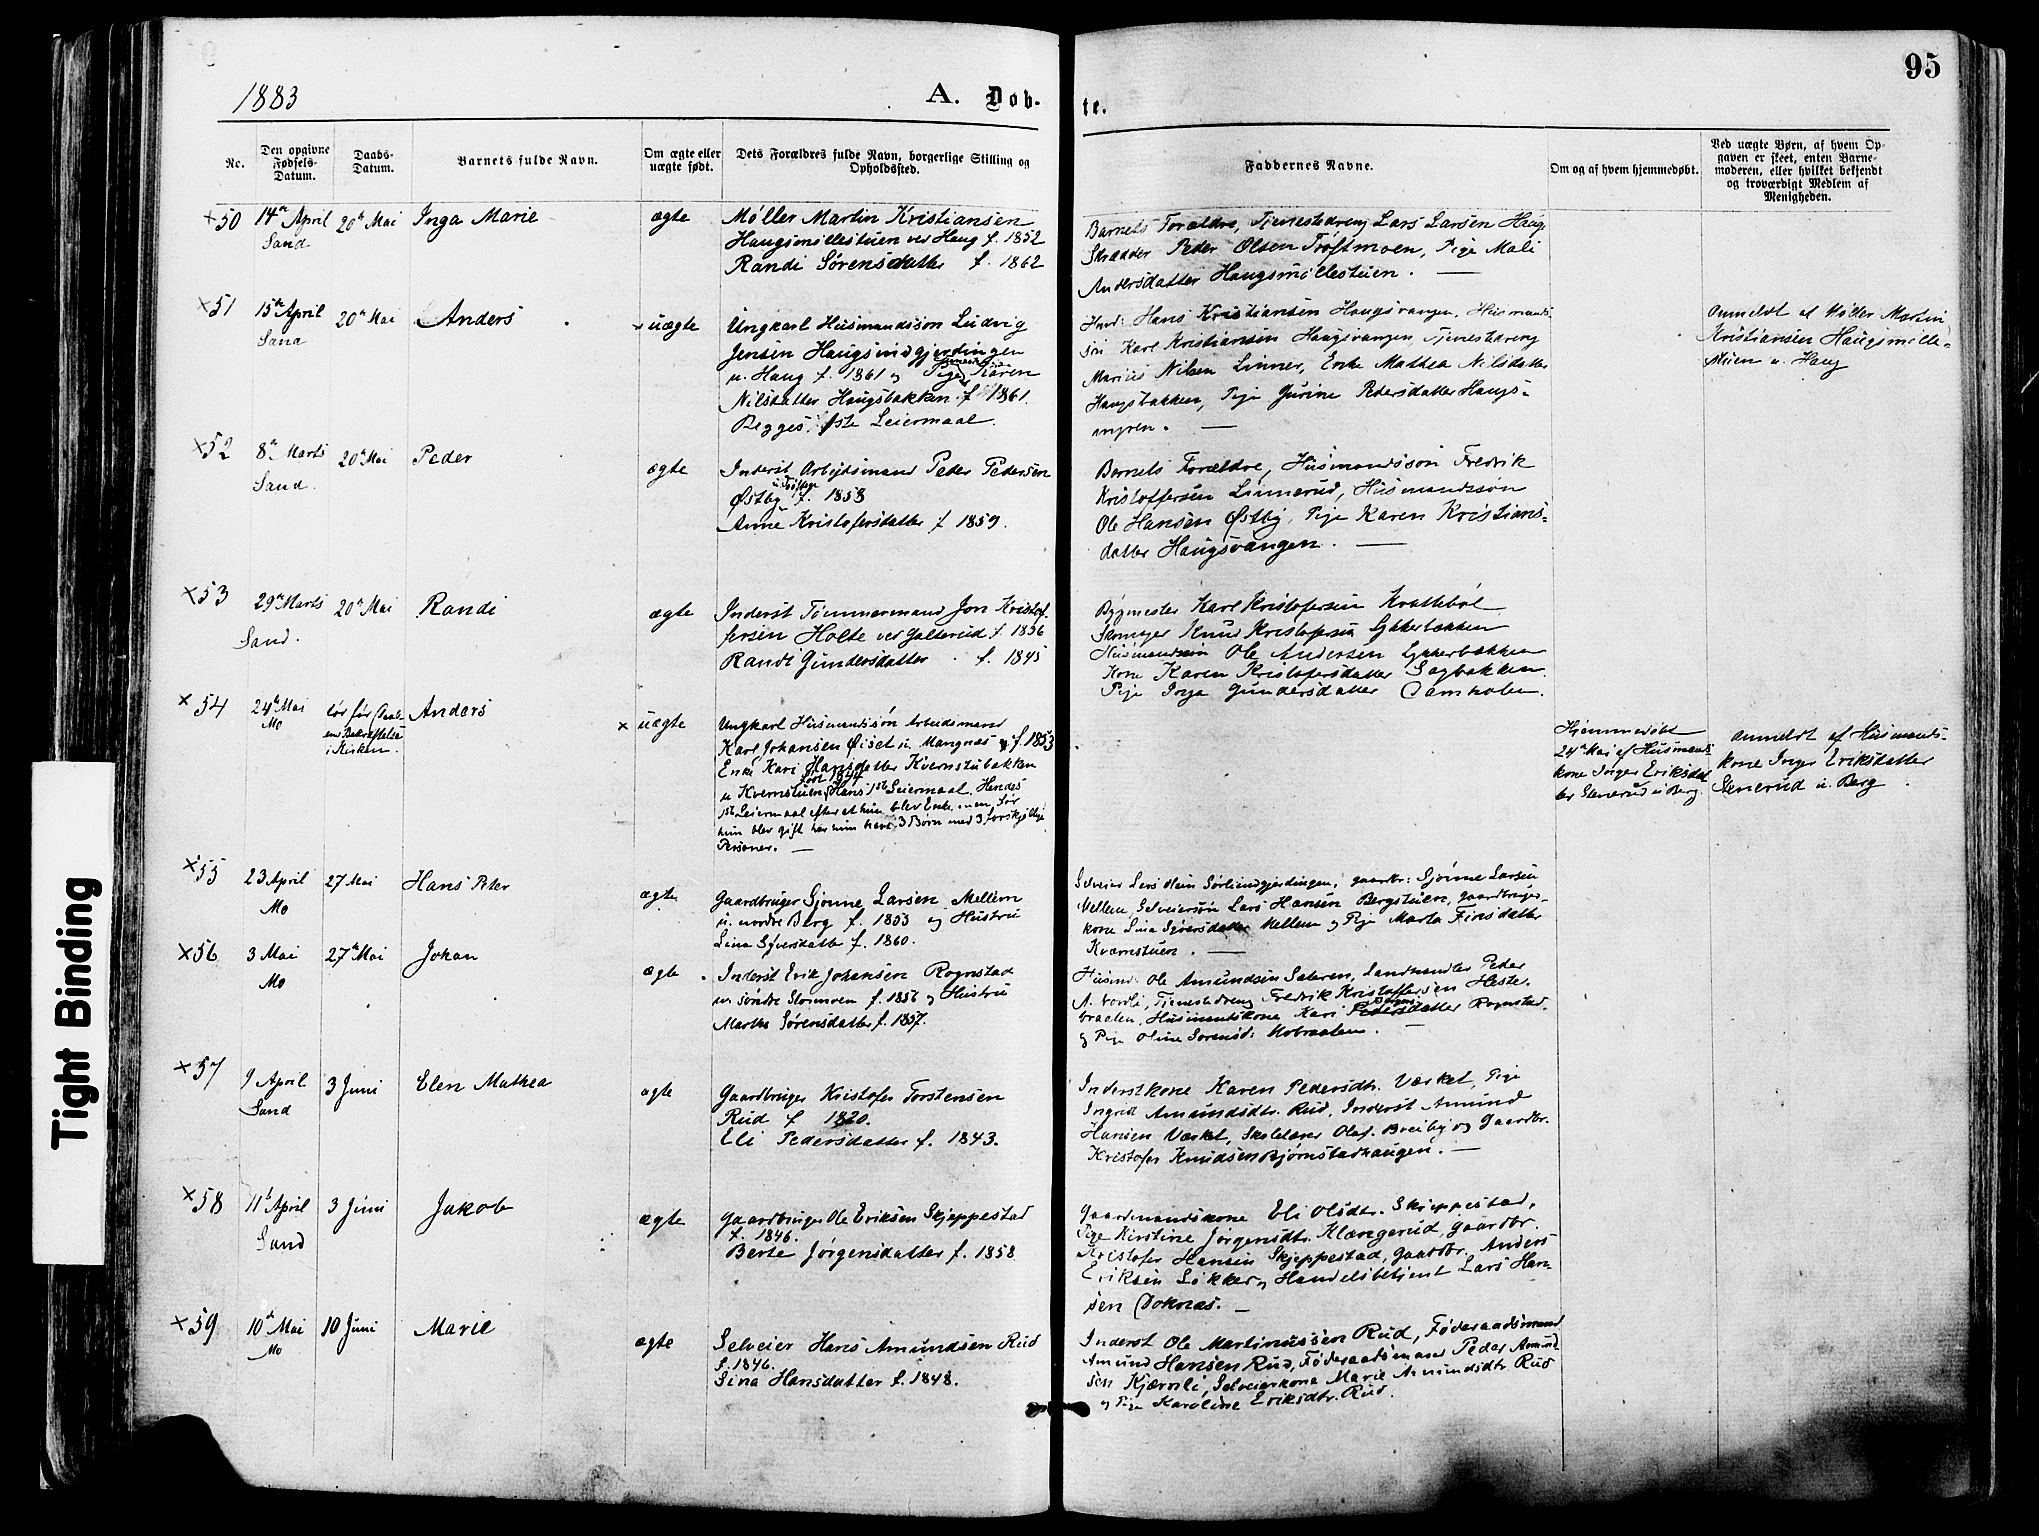 95
1883
A. Døb-
te.
Nr.
Den opgivne
Fødsels-
Datum.
Daabs-
Datum.
Barnets fulde Navn.
Om ægte eller
uægte født.
Dets Forældres fulde Navn, borgerlige Stilling og
Opholdssted.
Faddernes Navne.
Om og af hvem hjemmedøbt.
Ved uægte Børn, af hvem Op-
gaven er skeet, enten Barne-
moderen, eller hvilket bekjendt
og troværdigt Medlem af
Menigheden.
×50 14de April 20de Mai Inga Marie ægte
Sand
Møller Martin Kristiansen
Haugsmøllestuen ved Haug f. 1852
Randi Sørensdatter f. 1862
Barnets Forældre, Tjenestedreng Lars Larsen Haug,
Skrædder Peder Olsen Trøftmoen, Pige Mali
Andersdatter Haugsmøllestuen. —
×51 15de April 20de Mai Anders × uægte
Sand
Ungkarl Husmandssøn Ludvig
Jensen Haugsindgjerdingen
u. Haug f. 1861 og Pige Karen
Nilsdatter Haugsbakken f. 1861.
Begges 1ste Leiermaal.
Husmd: Hans Kristiansen Haugsvangen, Husmands-
søn Karl Kristiansen Haugsvangen Tjenestedreng
Marius Nilsen Linner, Enke Mathea Nilsdatter
Haugsbakken, Pige Gurine Pedersdatter Haugs-
myren. —
Anmeldt af Møller Martin
Kristiansen Haugsmølle-
stuen u. Haug
×52 8de Marts 20de Mai Peder ægte
Sand.
Inderst Arbeidsmand Peder Pedersen
Østby f. 1858
Anne Kristofersdatter f. 1859.
Barnets Forældre, Husmandssøn Fredrik
Kristoffersen Linnerud, Husmandssøn
Ole Hansen Østby, Pige Karen Kristians-
datter Haugsvangen. —
×53 29de Marts 20de Mai Randi ægte
Sand.
Inderst Tømmermand Jon Kristof-
fersen Holte ved Galterud f. 1856
Randi Gundersdatter f. 1845
Bygmester Karl Kristofersen Krattebøl
Skomager Knud Kristofersen Lykkerbakken
Husmandssøn Ole Andersen Lykkerbakken
Kone Karen Kristofersdatter Sagbakken.
Pige Inga Gundersdatter
×54 24de Mai Anders × uægte
Mo
døv før Daab-
ens Bekræftelse
i Kirken.
Ungkarl Husmandssøn Arbeidsmand
Karl Johansen Øiset u. Mangnæs f. 1853
Enke Kari Hansdatter Kvernstubakken
u Kvernstuen, født 1844 Hans 1ste Leiermaal. Hendes
1ste Leiermaal efter at hun blev Enke, men før
hun blev gift har hun havt 3 Børn med 3 forskjellige
Personer. —
Hjemmedøbt
24de Mai af Husmands-
kone Inger Eriksdat-
ter Stenerud u Berg
Anmeldt af Husmands-
kone Inger Eriksdatter
Stenerud u. Berg
×55 23 April 27 Mai Hans Peter ægte
Mo
Gaardbruger Sjønne Larsen Mellem
u. nordre Berg f. 1853 og Hustru
Lina Syversdatter f. 1860.
Selveier Lars Olsen Sørliendgjerdingen, gaardbr: Sjønne Larsen
Mellem, Selveiersøn Lars Hansen Bergstuen, gaardbruger-
kone Lina Syversdatter Mellem og Pige Marta Finsdatter
Kværnstuen. —
×56 3 Mai 27de Mai Johan ægte
Mo
Inderst Erik Johansen Rognstad
u. søndre Stormoen f. 1856 og Hustru
Marthe Sørensdatter f. 1857.
Husmd: Ole Amundsen Sæteren, Landhandler Peder
A. Nordli, Tjenestedreng Fredrik Kristoffersen Heste-
braaten, Husmandskone Kari Pedersdatter Rognstad
og Pige Oline Sørensd: Mobraaten. —
×57 9 April 3 Juni Elen Mathea ægte
Sand
Gaardbruger Kristofer Torstensen
Rud f 1820.
Eli Pedersdatter f. 1843.
Inderstkone Karen Pedersdtr. Værket, Pige
Ingrid Amundsdtr. Rud, Inderst Amund
Hansen Værket, Skolelærer Olaf Breiby og Gaardbr.
Kristofer Knudsen Bjørnstadhaugen. —
×58 11te April 3 Juni Jakob ægte
Sand
Gaardbruger Ole Eriksen Skjeppestad
f. 1846.
Berte Jørgensdatter f. 1858
Gaardmandskone Eli Olsdtr. Skjeppestad,
Pige Kirstine Jørgensdtr. Klængerud, Gaardbr.
Kristofer Hansen Skjeppestad, Gaardbr. Anders
Eriksen Løkker og Handelsbetjent Lars Han-
sen Doknæs. —
×59 10de Mai 10 Juni Marie ægte
Mo
Selveier Hans Amundsen Rud
f. 1846.
Sina Hansdatter f. 1848.
Inderst Ole Martinussen Rud, Føderaadsmand
Amund Hansen Rud, Føderaadsmand Peder Amund-
sen Kjærnli, Selveierkone Marie Amundsdtr. Rud
og Pige Karoline Eriksdtr. Rud.
Tight Binding